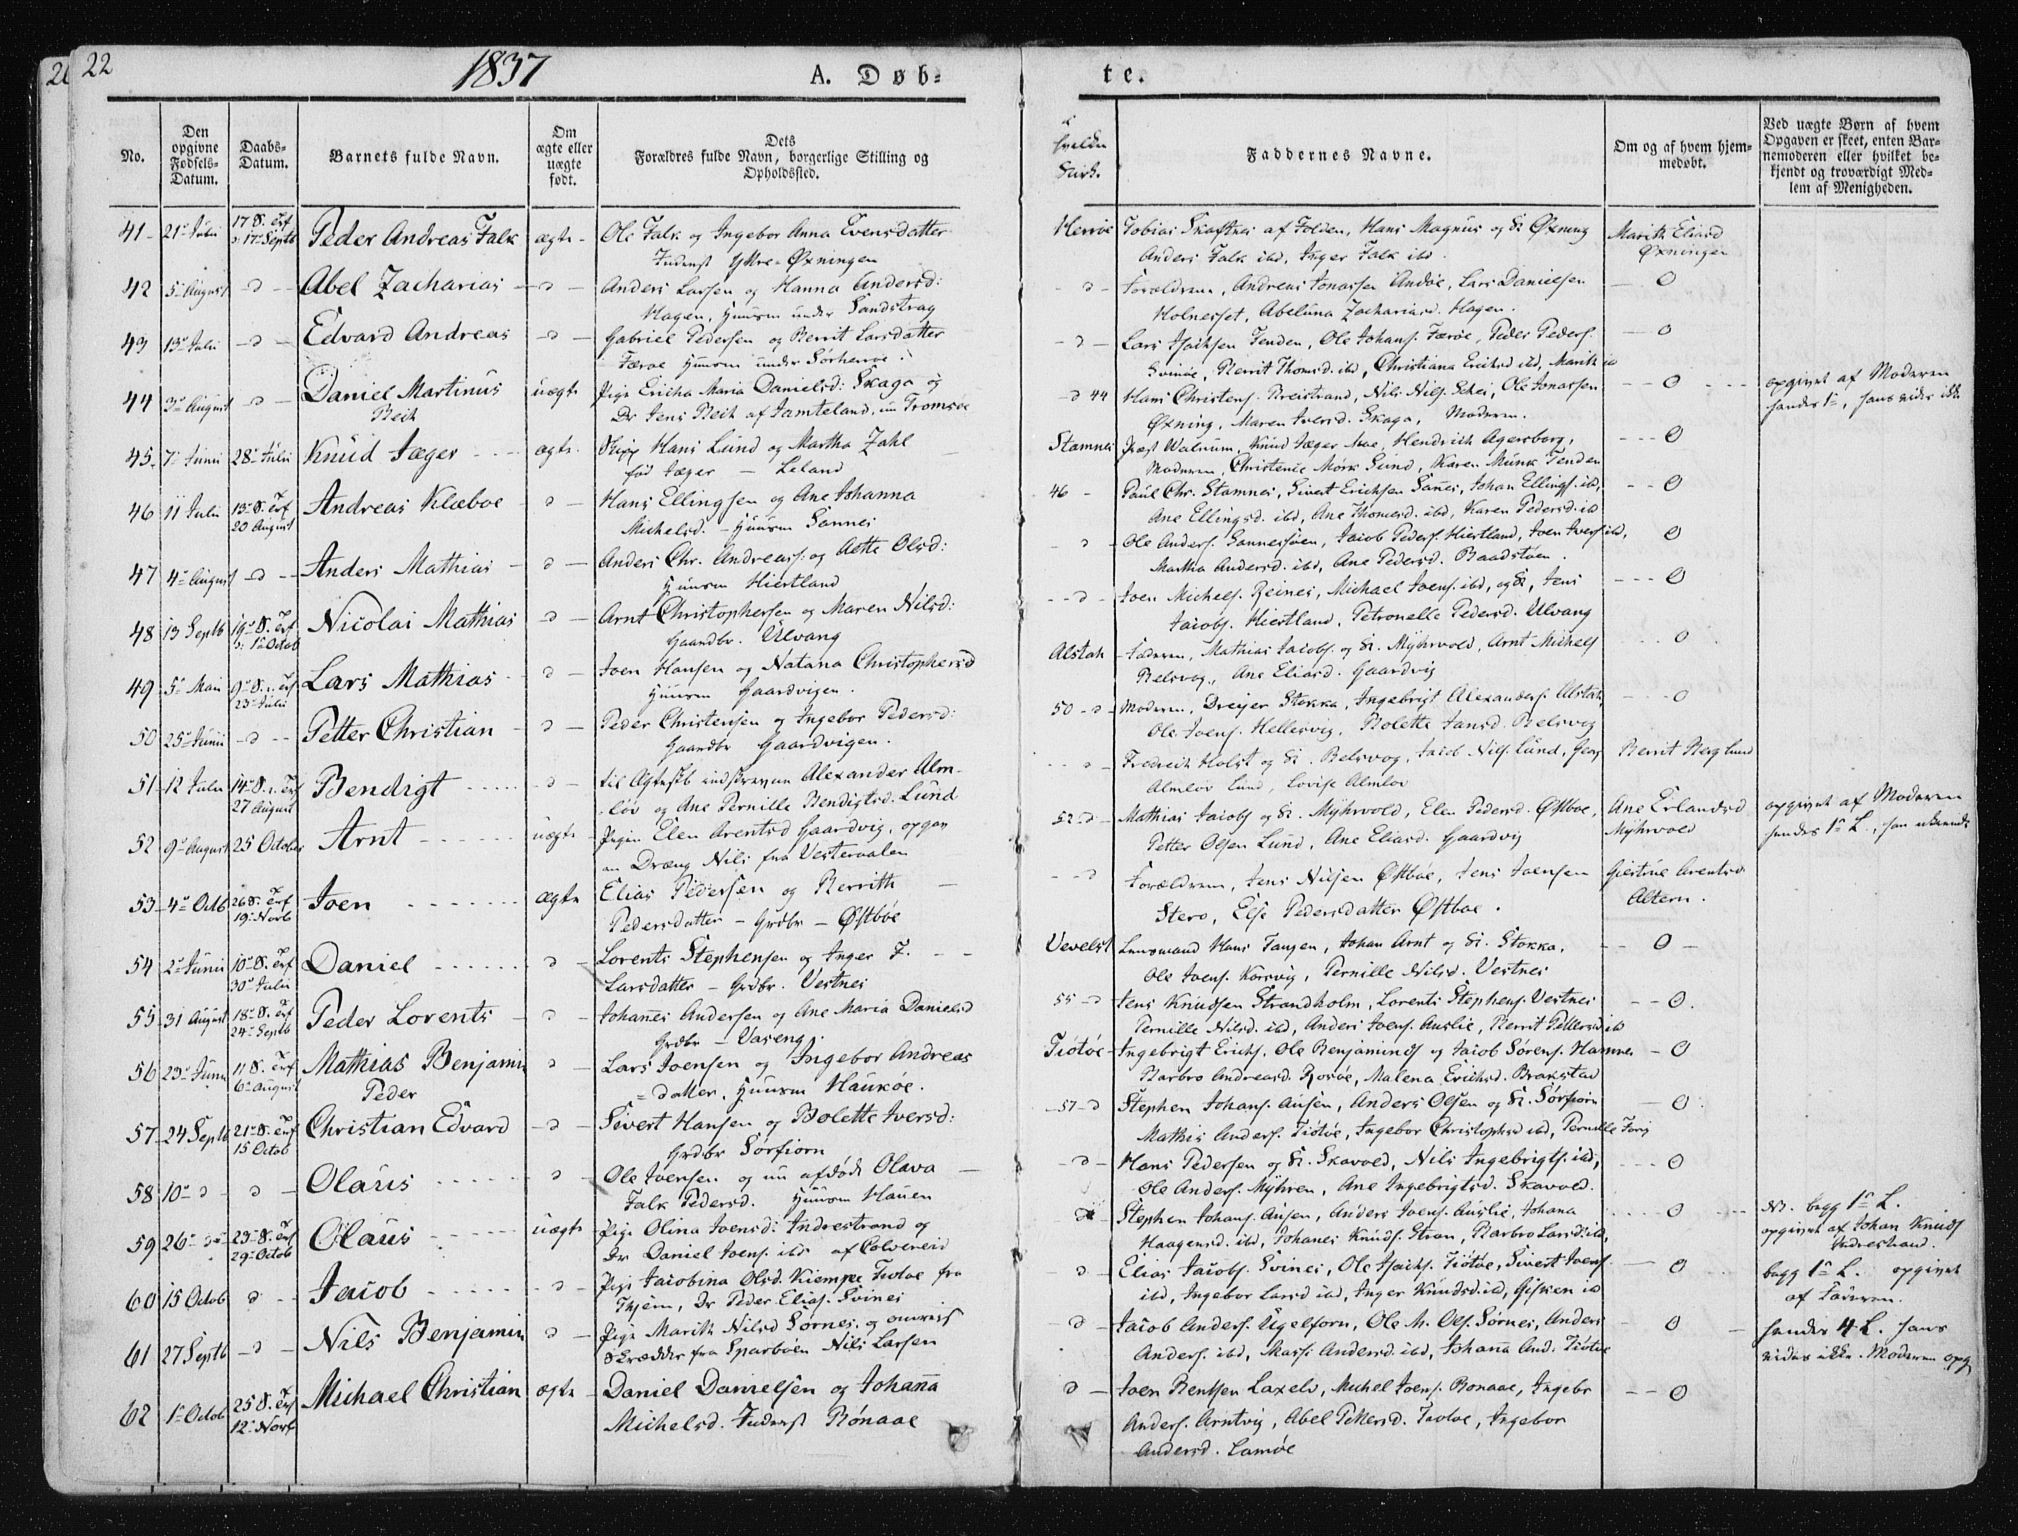 22
1837
A. Døb-
te.
No.
Den opgivne Fødsels-Datum.
Daabs-Datum.
Barnets fulde Navn.
Om ægte eller uægte født.
Dets Forældres fulde Navn, borgerlige Stilling og Opholdssted.
Faddernes Navne.
Om og af hvem hjemmedøbt.
Ved uægte Børn af hvem Opgaven er skeet, enten Barnemoderen eller hvilket bekjendt og troværdigt Medlem af Menigheden.
41 21 Julii 17 S. Trf 17 Septb Peder Andreas Falk ægte Ole Falk og Ingebor Anna Evensdatter
Ytre-Øxningen
Herrøe Tobias Skaftnes af Folden, Hans Magnus og K Øxning
Anders Falk ibd, Inger Falk ibd.
Marith Eliasd Øxningen
42 5 August Abel Zacharias Anders Larsen og Hanna Andersd:
Hagen, Huusm under Sandstrag
Forældrene, Andreas Jonassen Andøe, Lars Danielsen
Holmesset, Abeluna Zachariasd. Hagen. 0
43 13 Julii Edvard Andreas Gabriel Pedersen og Berrit Larsdatter
Færøe Huusm under Sørherrøe.
Lars Isachsen Tenden, Ole Johans. Færøe, Peder Peders.
Svinøe, Berrit Thomsd. ibd, Christiana Erichsd ibd, Marith ib 0
44 3 August Daniel Martinus uægte Pige Ericha Maria Danielsd: Skaga og
Beik Dr Jens Beik af Jamteland, nu Tromsøe
44 Hans Christens. Breistrand, Nils Nils. Schei, Ole Jonassen
Øxning, Maren Iversd. Skaga, Moderen. 0
opgivet af Moderen
hendes 1, hans vides ikke
45 7 Junii 28 Julii Knud Jæger ægte Skipp Hans Lund og Martha Zahl
fød Jæger - Leland
Stamnes Præst Walnum, Knud Jæger, Hendrich Agersborg,
Moderen, Christence Mørk Lund, Karen Munk Tenden 0
46 11 Julii 13 S. Trf 20 August Andreas Klæboe Hans Ellingsen og Ane Johanna
Michelsd. Huusm Sannes
46 Paul Chr. Stamnes, Sivert Erichsen Sanes, Johan Ellings. ibd,
Ane Ellingsd. ibd, Ane Thomesd. ibd, Karen Pedersd. ib 0
47 4 August Anders Mathias Anders Chr. Andreass. og Aette Olsd:
Huusm Hiertland
Ole Anders. Sannessøen, Jacob Peders. Hiertland, Joen Ivers ibd,
Martha Andersd. ibd, Ane Pedersd. Baadstøen. 0
48 13 Septb 19 S. Trf 1 Octob Nicolai Mathias Arnt Christophersen og Maren Nilsd:
Gaardbr. Ulvang
Joen Michels. Reines, Michael Joens. ibd, og K, Jens
Jacobs. Hiertland, Petronelle Pedersd. Ulvang 0
49 5 Mai 9 S. Trf 23 Julii Lars Mathias Joen Hansen og Natana Christophersd
Huusm Gaardvigen.
Alstah Faderen, Mathias Jacobs. og K. Myhrvold, Arnt Michels
Belsvog, Ane Eliasd. Gaardvig 0
50 25 Junii Petter Christian Peder Christensen og Ingebor Pedersd:
Gaardbr Gaardvigen.
50 Moderen, Dreyer Stokka, Ingebrigt Alexanders. Alstah,
Ole Joens. Hellesvig, Bolette Jansd. Belsvog 0
51 12 Julii 14 S. Trf 27 August Bendigt til Ægteskb indskrevne Alexander Alm-
løv og Ane Pernille Bendigtsd. Lund
Fredrich Holst og K. Belsvog, Jacob Nils. Lund, Georg
Almløv Lund, Lovise Almløv
Berrit Berg Lund
52 9 August 25 October Arnt uægte Pigen Elen Arentsd Gaardvig,
Dræng Nils fra Vesteraalen
52 Mathias Jacobs og K. Myhrvold, Elen Pedersd. Østboe,
Petter Olsen Lund, Ane Eliasd. Gaardvig
Ane Erlandsd Myhrvold
opgivet af Moderen
hendes 1 L.,
53 4 Octb 26 S. Trf 19 Novb Joen ægte Elias Pedersen og Berrith
Pedersdatter - Grdbr - Østbøe
Forældrene, Jens Nilsen Østbøe, Jens Joensen
Stero, Else Pedersdatter Østboe.
Giertrue Arentsd. Altern.
54 2 Junii 10 S. Trf 30 Julii Daniel Lorents Stephensen og Inger F.
Larsdatter - Grdbr. Vestnes
Vevelst Lensmand Hans Tangen, Johan Arnt og K. Stokka,
Ole Joens. Korsvig, Pernille Nilsd. Vestnes 0
55 31 August 18 S. Trf 24 Septb Peder Lorents Johannes Andersen og Ane Maria Danielsd
Grdbr - Vaseng.
55 Jens Knudsen Strandholm, Lorents Stephens. Vestnes
Pernille Nilsd. ibd, Anders Joens. Auslie, Berrit Pettersd ib 0.
56 23 Junii 11 S. Trf 6 August Mathias Benjamin Lars Joensen og Ingebor Andreas
Peder = datter, Huusm Haukøe.
Tiøtøe Ingebrigt Erichs. Ole Benjamins og Jacob Sørens. Hamnes
Barbro Andreasd. Rosøe, Malena Erichsd. Brakstad 0
57 24 Septb 21 S. Trf 15 Octob Christian Edvard Sivert Hansen og Bolette Iversd:
Grdbr Sørfiorn
57 Stephen Johans. Ausen, Anders Olsen og K. Sørfiorn
Mathis Anders. Tiøtøe, Ingebor Christophsd ibd, Pernille 0
58 10 Olaus Ole Ivensen og nu afdøde Olava
Falk Pedersd. Huusm Hauen
Hans Pedersen og K. Skavold, Nils Ingebrigts. ibd,
Ole Anders. Myhren, Ane Ingebrigtsd. Skavold. 0
59 26 23 S. Trf 29 Octob Olaus uægte Pige Olina Joensd: Indrestrand og
Dr Daniel Joens. ibd af Colvereid
Stephen Johans. Ausen, Anders Joens. Auslie, Johana
Haagensd. ibd, Johanes Knuds. Stran, Barbro Larsd. ibd, 0
NB. begg 1 L.
opgivet af Johan Knuds
Indrestrand.
60 15 Octob Jacob Pige Jacobina Olsd. Kiempe Tiotoe fra
Dr Peder Elias. Svines
Elias Jacobs. Svines, Ole Isachs. Tiötøe, Sivert Joens.
ibd, Ingebor Larsd ibd, Inger Knudsd. ibd, Gisken ib 0
begg 1 L. opgivet
af Faderen.
61 27 Septb Nils Benjamin Pige Marith Nilsd Sørnes, og
Skrædder fra Sparboen Nils Larsen
Jacob Anders. Ugelforn, Ole M. Ols. Sørnes, Anders
Anders. ibd, Massi Andersd. ibd, Johana And. Tiötøe 0
hendes 4 L. hans
vides ikke. Moderen opg
62 1 Octob 25 S. Trf 12 Novb Michael Christian ægte Daniel Danielsen og Johanna
Michelsd. Bønaae
Joen Bentsen Laxelv, Michel Joens. Bonaae, Ingebr
Anders. Arntvig, Abel Pettersd. Tiotoe, Ingebor
Andersd. Lamøe 0